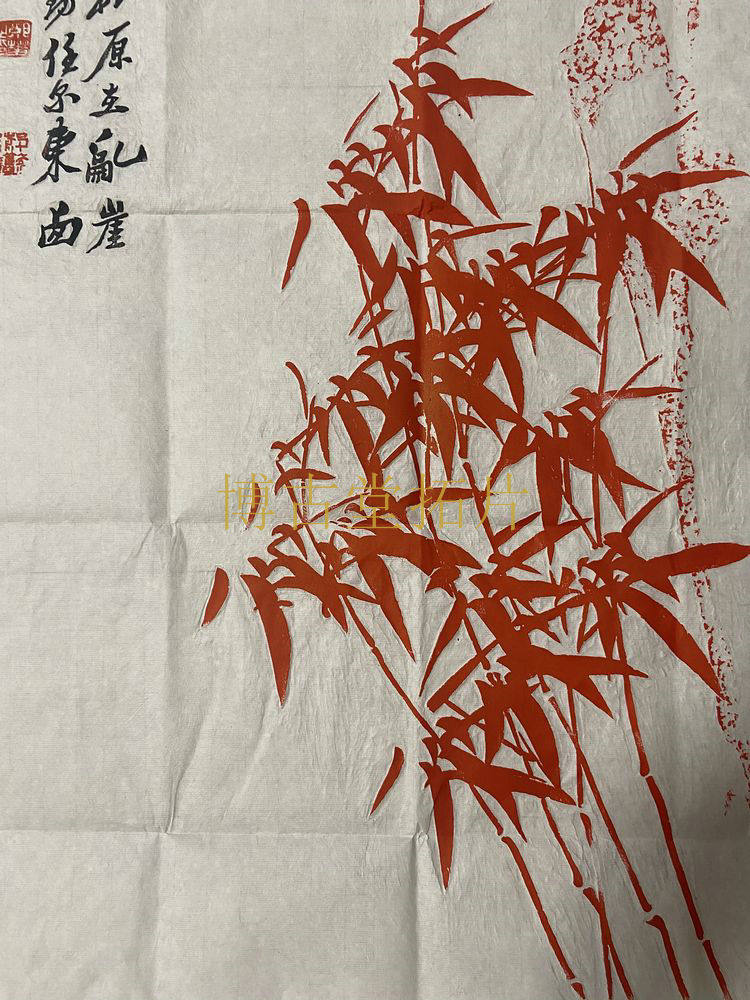 原在亂崖
任尔東西
博古堂拓片